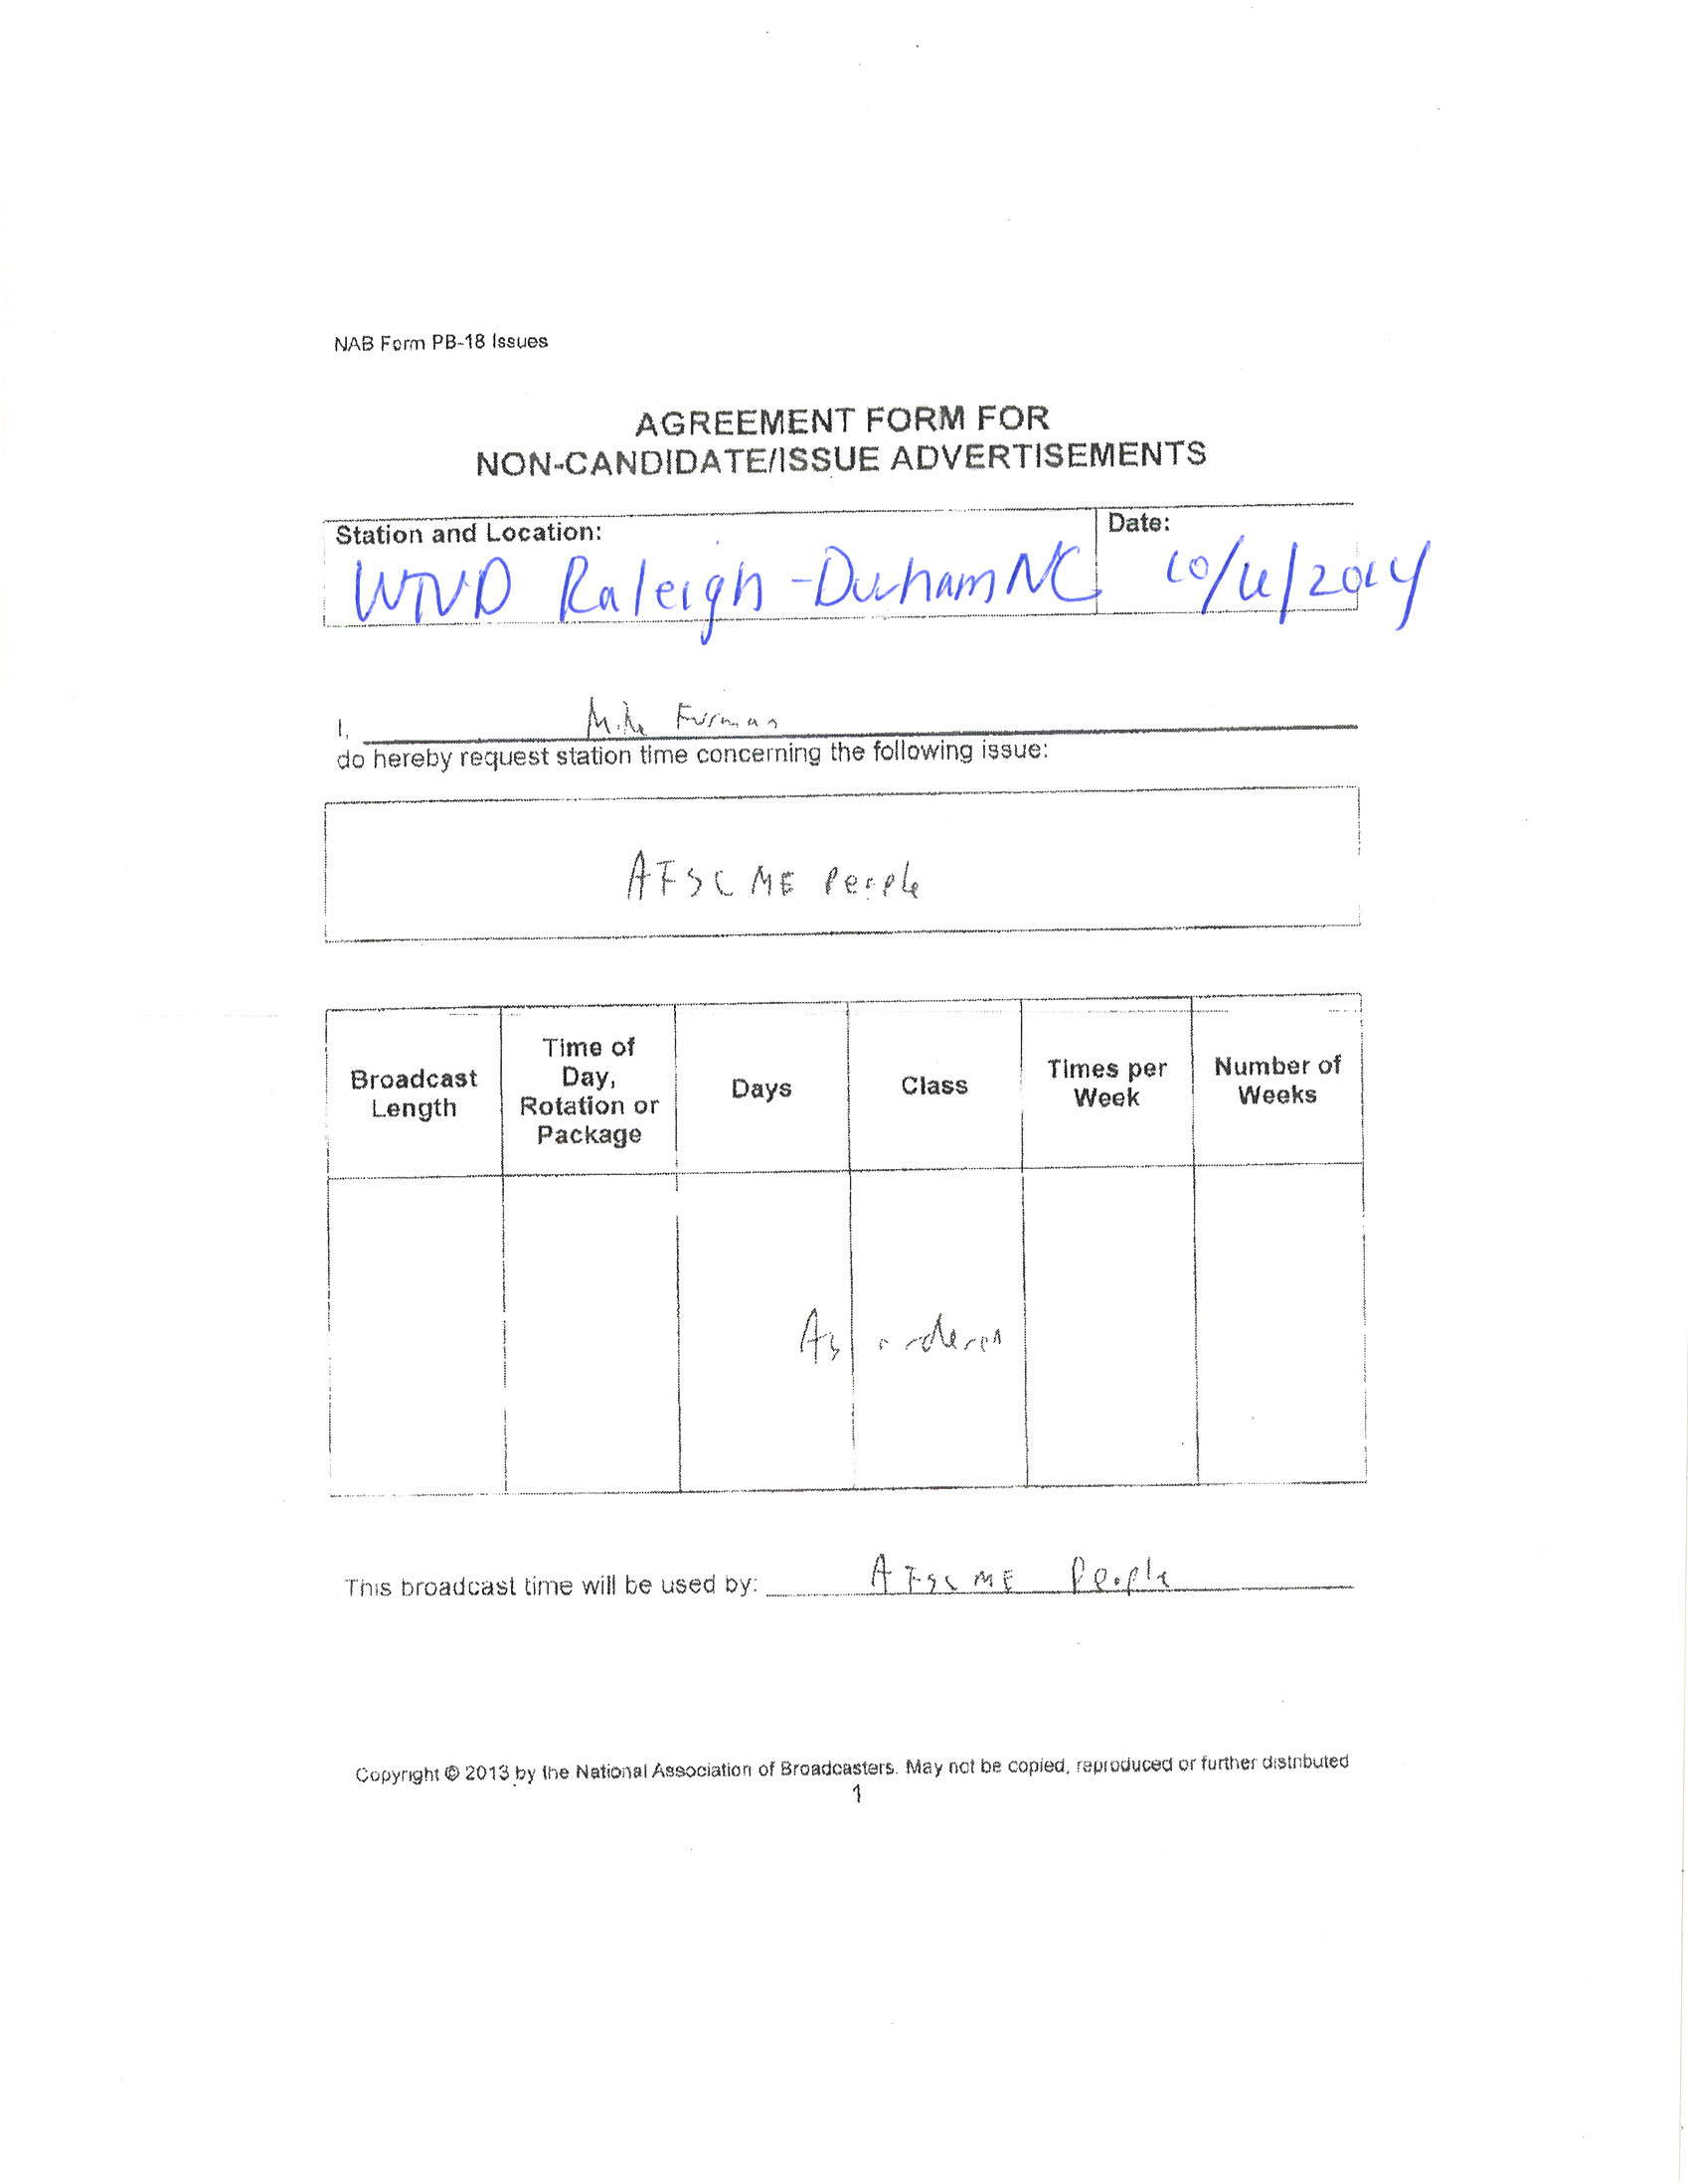 NAB Form PB-18 Issues
AGREEMENT FORM FOR
NON-CANDIDATE/ISSUE ADVERTISEMENTS
Station and Location:
Date:
WTVD Raleigh-Durham NC
I, Mike Furman
do hereby request station time concerning the following issue:
AFSCME People
Broadcast Length
Time of Day, Rotation or Package
Days
Class
Times per Week
Number of Weeks
As ordered
This broadcast time will be used by: AFSCME People
Copyright © 2013 by the National Association of Broadcasters. May not be copied, reproduced or further distributed
1